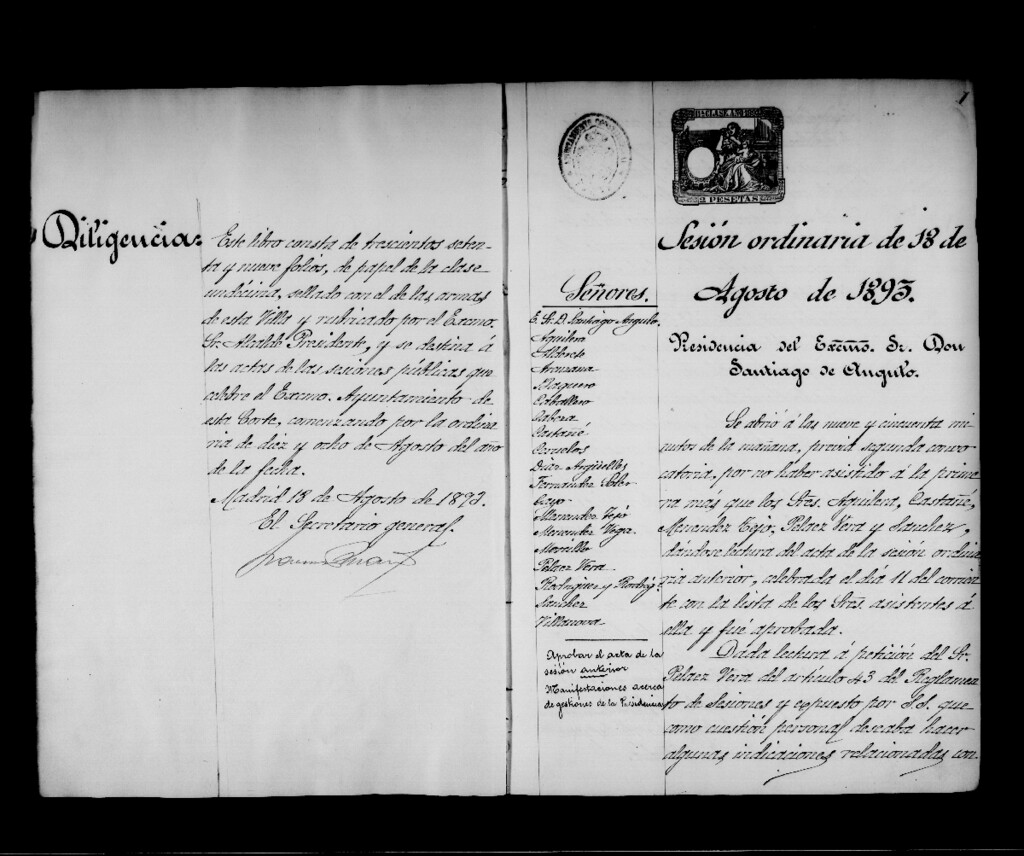 Diligencia=
Este libro consta de trescientos seten-
ta y nueve folios, de papel de la clase
undécima, sellado con el de las armas
de esta Villa y rubricado por el Excmo.
Sr. Alcalde Presidente, y se destina á
las actas de las sesiones públicas que
celebre el Excmo. Ayuntamiento de
esta Corte, comenzando por la ordina
ria de diez y ocho de Agosto del año
de la fecha.
Madrid 18 de Agosto de 1893.
El Secretario general.
1
CLASE
2 PESETAS
Sesión ordinaria de 18 de
Agosto de 1893.
Presidencia del Excmo. Sr. Don
Santiago de Angulo.
Señores.
E. Sr. D. Santiago Angulo.
Aguilera
Alderete
Aranana
Blaquero
Caballero
Cabeza
Castañé
Corrolos
Diaz Argüelles
Fernandez Soler
Gayo
Menendez Tejo
Menendez Vega
Morcillo
Pelaez Vera
Rodriguez y Rodrig.
Sanchez
Villanova
Aprobar el acta de la
sesión anterior
Manifestaciones acerca
de gestiones de la Presidencia
Se abrió á las nueve y cincuenta mi
nutos de la mañana, previa segunda convo
catoria, por no haber asistido á la prime
ra más que los Sres. Aguilera, Castañé,
Menendez Tejo, Pelaez Vera y Sanchez,
dándose lectura del acta de la sesión ordina
ria anterior, celebrada el día 11 del corrien
te con la lista de los Sres. asistentes á
ella y fué aprobada.
Dada lectura á petición del Sr.
Pelaez Vera del artículo 43 del Reglamen
to de Sesiones y expuesto por S.S. que
como cuestión personal deseaba hacer
algunas indicaciones relacionadas con